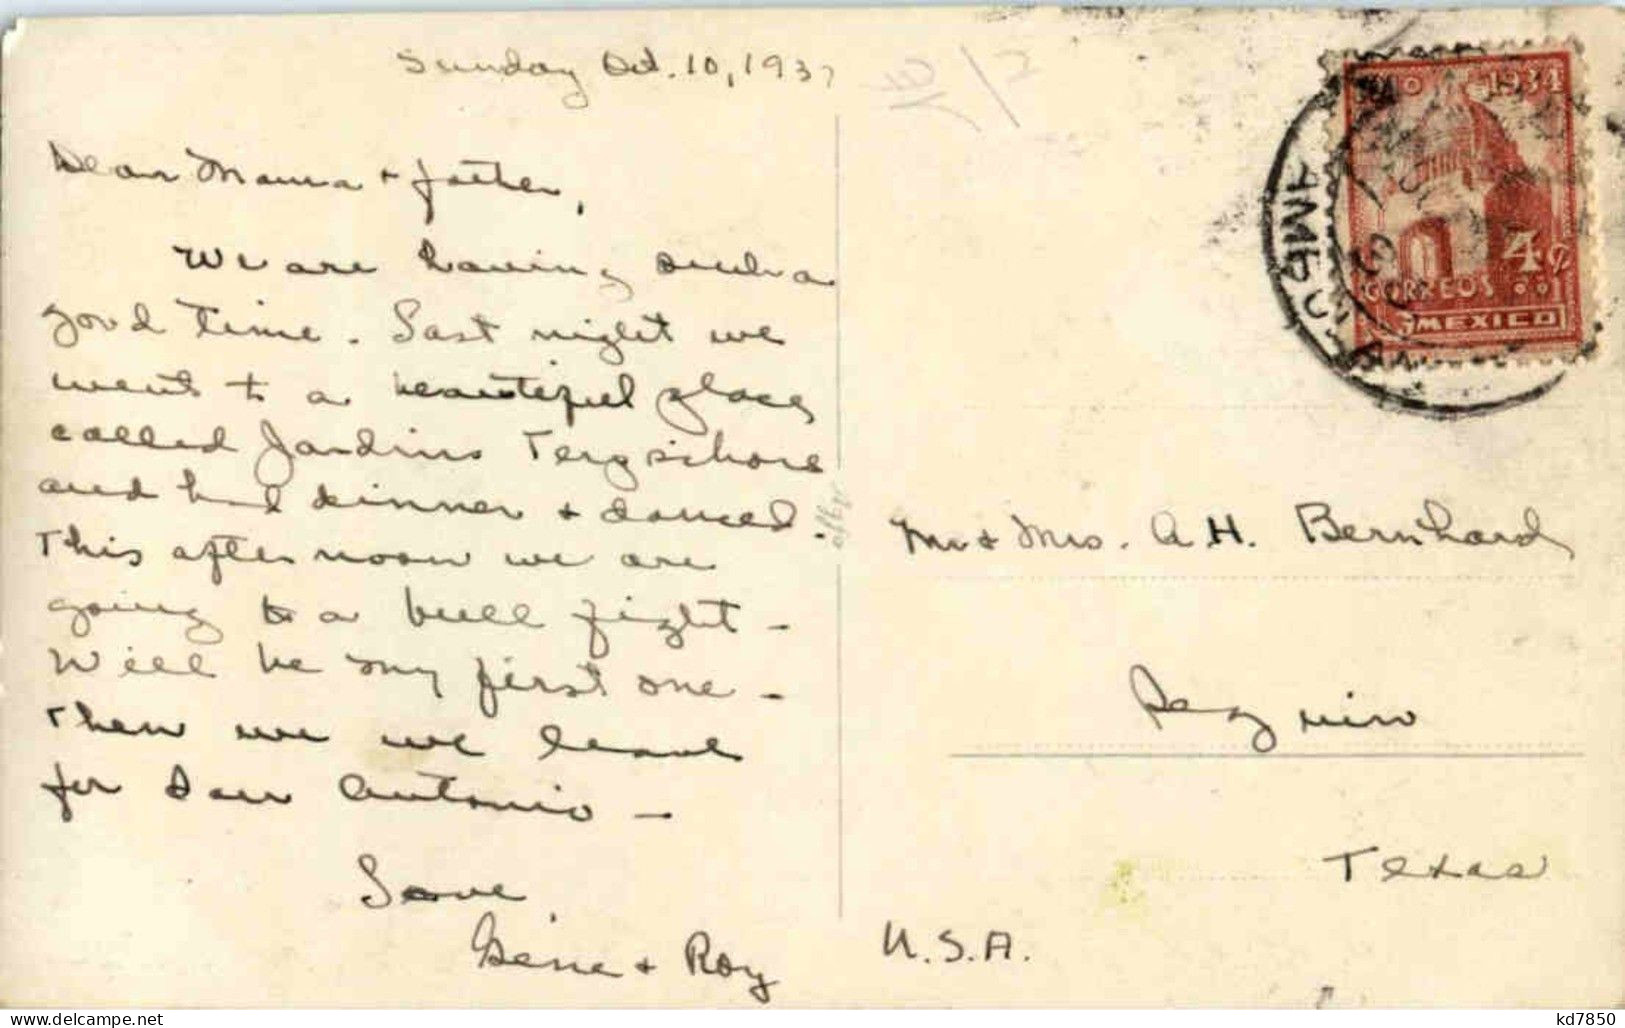 Sunday Oct. 10, 1937
Dear Mama + father,
We are having such a
good time. Last night we
went to a beautiful place
called Jardins Terpsichore
and had dinner + danced.
This afternoon we are
going to a bull fight -
Will be my first one -
Then we we leave
for San Antonio -
Love,
Gene + Roy
1934
4 c
CORREOS
MEXICO
Mr + Mrs. A. H. Bernhard
Seguin
Texas
U.S.A.
kd7850